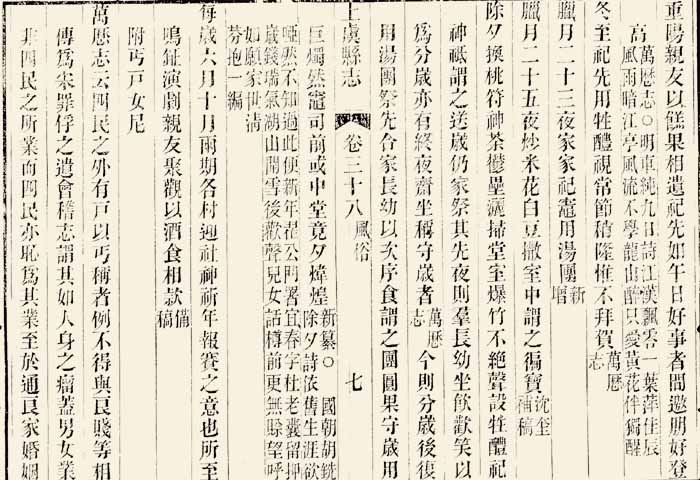 重陽親友以餻果相遺祀先如午日好事者間邀朋好登
高萬厯志○明車純九日詩江漢飄零一葉萍佳辰
風雨暗江亭風流不學龍山醉只愛黃花伴獨醒
冬至祀先用牲醴視常節稍隆惟不拜賀萬厯
志
臘月二十三夜家家祀竈用湯團新
增
臘月二十五夜炒米花白豆撒室中謂之徧寶沈奎
補稿
除夕換桃符神荼鬱壘灑掃堂室爆竹不絕聲設牲醴祀
神祗謂之送歲仍家祭其先夜則羣長幼坐飲歡笑以
爲分歲亦有終夜齋坐稱守歲者萬厯
志
今則分歲後復
用湯團祭先合家長幼以次序食謂之團圓果守歲用
上虞縣志
卷三十八
風俗
七
巨燭然竈司前或中堂竟夕煒煌新纂○國朝胡銑
除夕詩依舊生涯欲
啞然不知過此便新年君公門署宜春字杜老囊留押
歲錢瑞氣湖山開雪後歡聲兒女話樽前更無賒望呼
如願家世淸
芬抱一編
每歲六月十月兩期各村迎社神祈年報賽之意也所至
鳴鉦演劇親友聚觀以酒食相款備
稿
附丐戸女尼
萬厯志云四民之外有戸以丐稱者例不得與民賤等相
傳爲宋罪俘之遺會稽志謂其如人身之瘤蓋男女業
非四民之所業而四民亦恥爲其業至於通民家婚姻